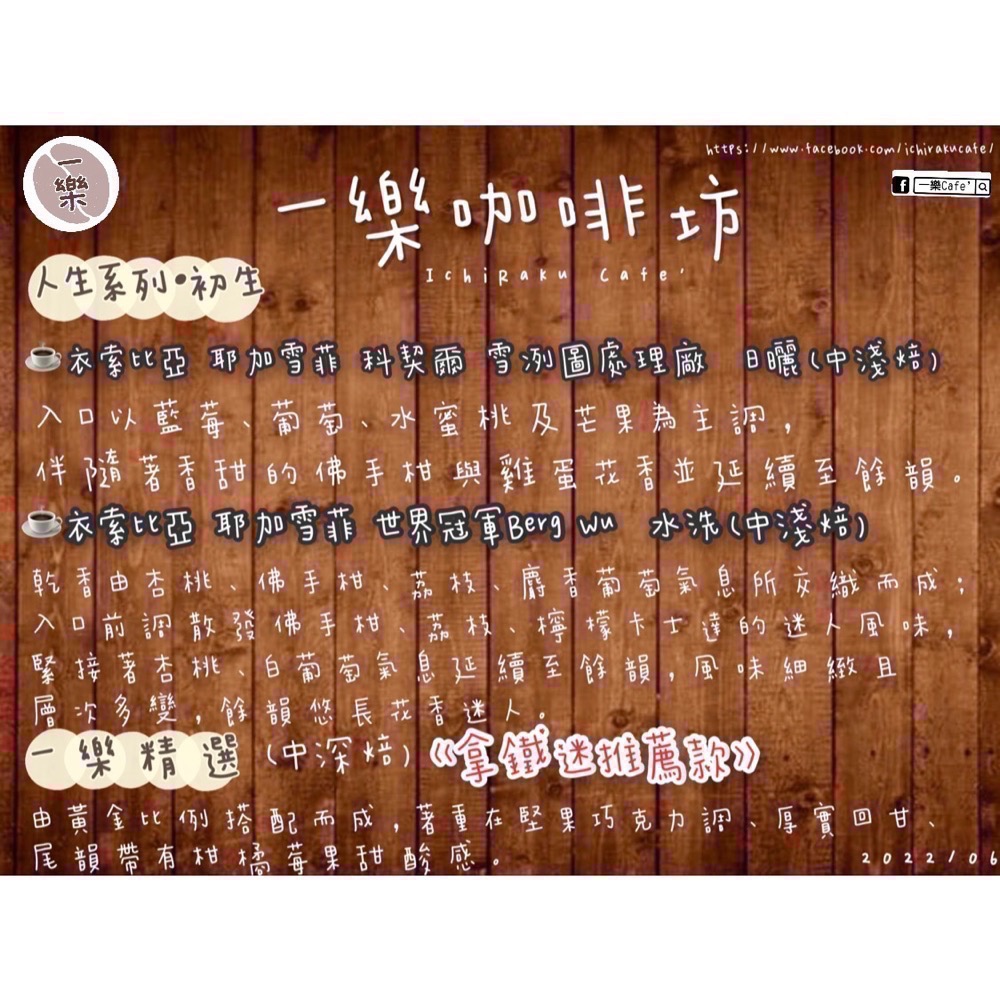 一樂
https://www.facebook.com/ichirakucafe/
f 一樂Cafe'
一樂咖啡坊
IchiRaku Cafe'
人生系列•初生
衣索比亞 耶加雪菲 科契爾 雪冽圖處理廠 日曬(中淺焙)
入口以藍莓、葡萄、水蜜桃及芒果為主調，
伴隨著香甜的佛手柑與雞蛋花香並延續至餘韻。
衣索比亞 耶加雪菲 世界冠軍Berg Wu 水洗(中淺焙)
乾香由杏桃、佛手柑、荔枝、麝香葡萄氣息所交織而成；
入口前調散發佛手柑、荔枝、檸檬卡士達的迷人風味，
緊接著杏桃、白葡萄氣息延續至餘韻，風味細緻且
層次多變，餘韻悠長花香迷人。
一樂精選 (中深焙)《拿鐵迷推薦款》
由黃金比例搭配而成，著重在堅果巧克力調、厚實回甘、
尾韻帶有柑橘莓果甜酸感。
2022/06